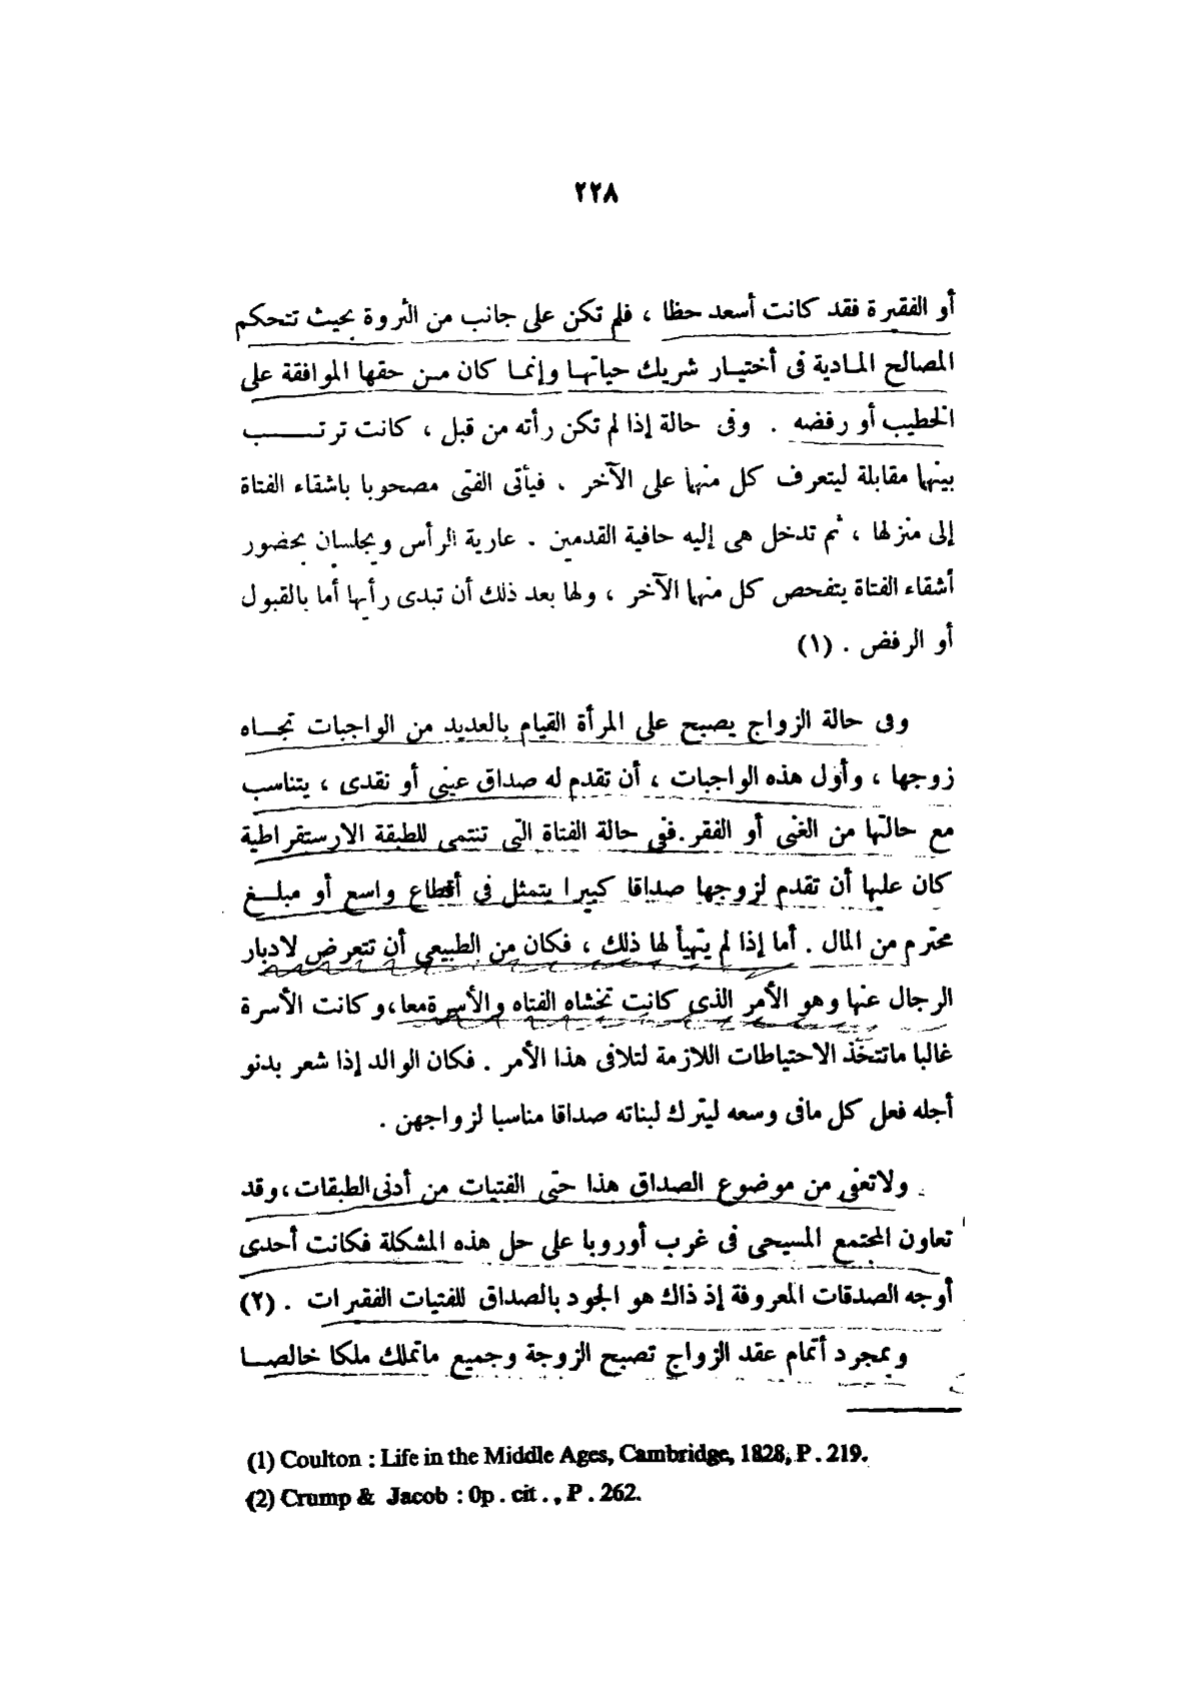 ٢٢٨
أو الفقيرة فقد كانت أسعد حظا ، فلم تكن على جانب من الثروة بحيث تتحكم
المصالح المادية فى أختيار شريك حياتها وإنما كان من حقها الموافقة على
الخطيب أو رفضه . وفى حالة إذا لم تكن رأته من قبل ، كانت ترتب
بينها مقابلة ليتعرف كل منها على الآخر . فيأتى الفتى مصحوبا باشقاء الفتاة
إلى منزلها ، ثم تدخل هى إليه حافية القدمين . عارية الرأس ويجلسان بحضور
أشقاء الفتاة يتفحص كل منها الآخر ، ولها بعد ذلك أن تبدى رأيها أما بالقبول
أو الرفض . (١)
وفى حالة الزواج يصبح على المرأة القيام بالعديد من الواجبات تجاه
زوجها ، وأول هذه الواجبات ، أن تقدم له صداق عينى أو نقدى ، يتناسب
مع حالتها من الغنى أو الفقر . ففى حالة الفتاة التى تنتمى للطبقة الارستقراطية
كان عليها أن تقدم لزوجها صداقا كبيرا يتمثل فى أقطاع واسع أو مبلغ
محترم من المال . أما إذا لم يتهيأ لها ذلك ، فكان من الطبيعى أن تتعرض لادبار
الرجال عنها وهو الأمر الذى كانت تخشاه الفتاه والأسرة معا ، وكانت الأسرة
غالبا ماتتخذ الاحتياطات اللازمة لتلافى هذا الأمر . فكان الوالد إذا شعر بدنو
أجله فعل كل مافى وسعه ليترك لبناته صداقا مناسبا لزواجهن .
ولاتعفى من موضوع الصداق هذا حتى الفتيات من أدنى الطبقات ، وقد
تعاون المجتمع المسيحى فى غرب أوروبا على حل هذه المشكلة فكانت أحدى
أوجه الصدقات المعروفة إذ ذاك هو الجود بالصداق للفتيات الفقيرات . (٢)
وبمجرد أتمام عقد الزواج تصبح الزوجة وجميع ماتملك ملكا خالصا
(1) Coulton : Life in the Middle Ages, Cambridge, 1828, P . 219.
(2) Crump & Jacob : 0p . cit . , P . 262.